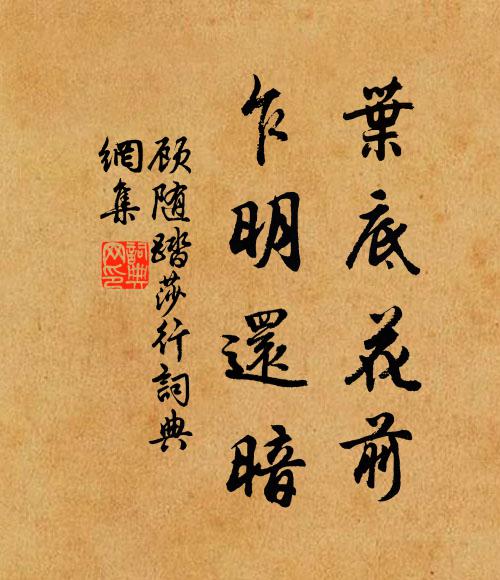 葉底花前
乍明還暗
顾随踏莎行詞典
網集
詞典網印